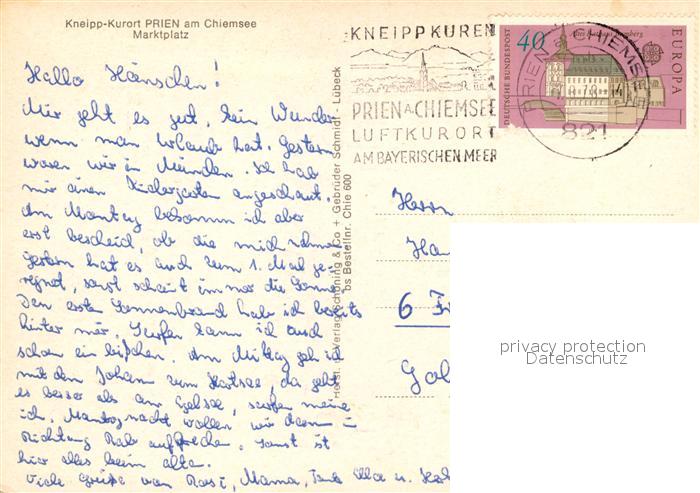 Kneipp-Kurort PRIEN am Chiemsee
Marktplatz
Hallo Hänschen!
Mir geht es gut, kein Wunder
wenn man Urlaub hat. Gestern
waren wir in München. Ich hab
mir einen Kindergarten angeschaut.
Am Montag bekomm ich aber
erst bescheid, ob die mich nehmen.
Gestern hat es auch zum 1. Mal ge-
regnet, sonst scheint immer die Sonne.
Den ersten Sonnenbrand habe ich bereits
hinter mir. Surfen kann ich auch
schon ein bißchen. Am Mittag geh ich
mit dem Johann zum, da geht
es besser als am, surfen meine
ich. Montag nacht wollen wir dann in
Richtung aufbrechen. Sonst ist
hier alles beim alten.
Viele Grüße von Rosi, Mama, u.
Herst. u. Verlag Schöning & Co + Gebrüder Schmidt - Lübeck
bs Bestellnr. Chie 600
KNEIPPKUREN
PRIEN A. CHIEMSEE
LUFTKURORT
AM BAYERISCHEN MEER
DEUTSCHE BUNDESPOST
40
Altes Rathaus Bamberg
EUROPA
PRIEN a. CHIEMSEE
821
Herrn
Ha
6 F
privacy protection
Datenschutz